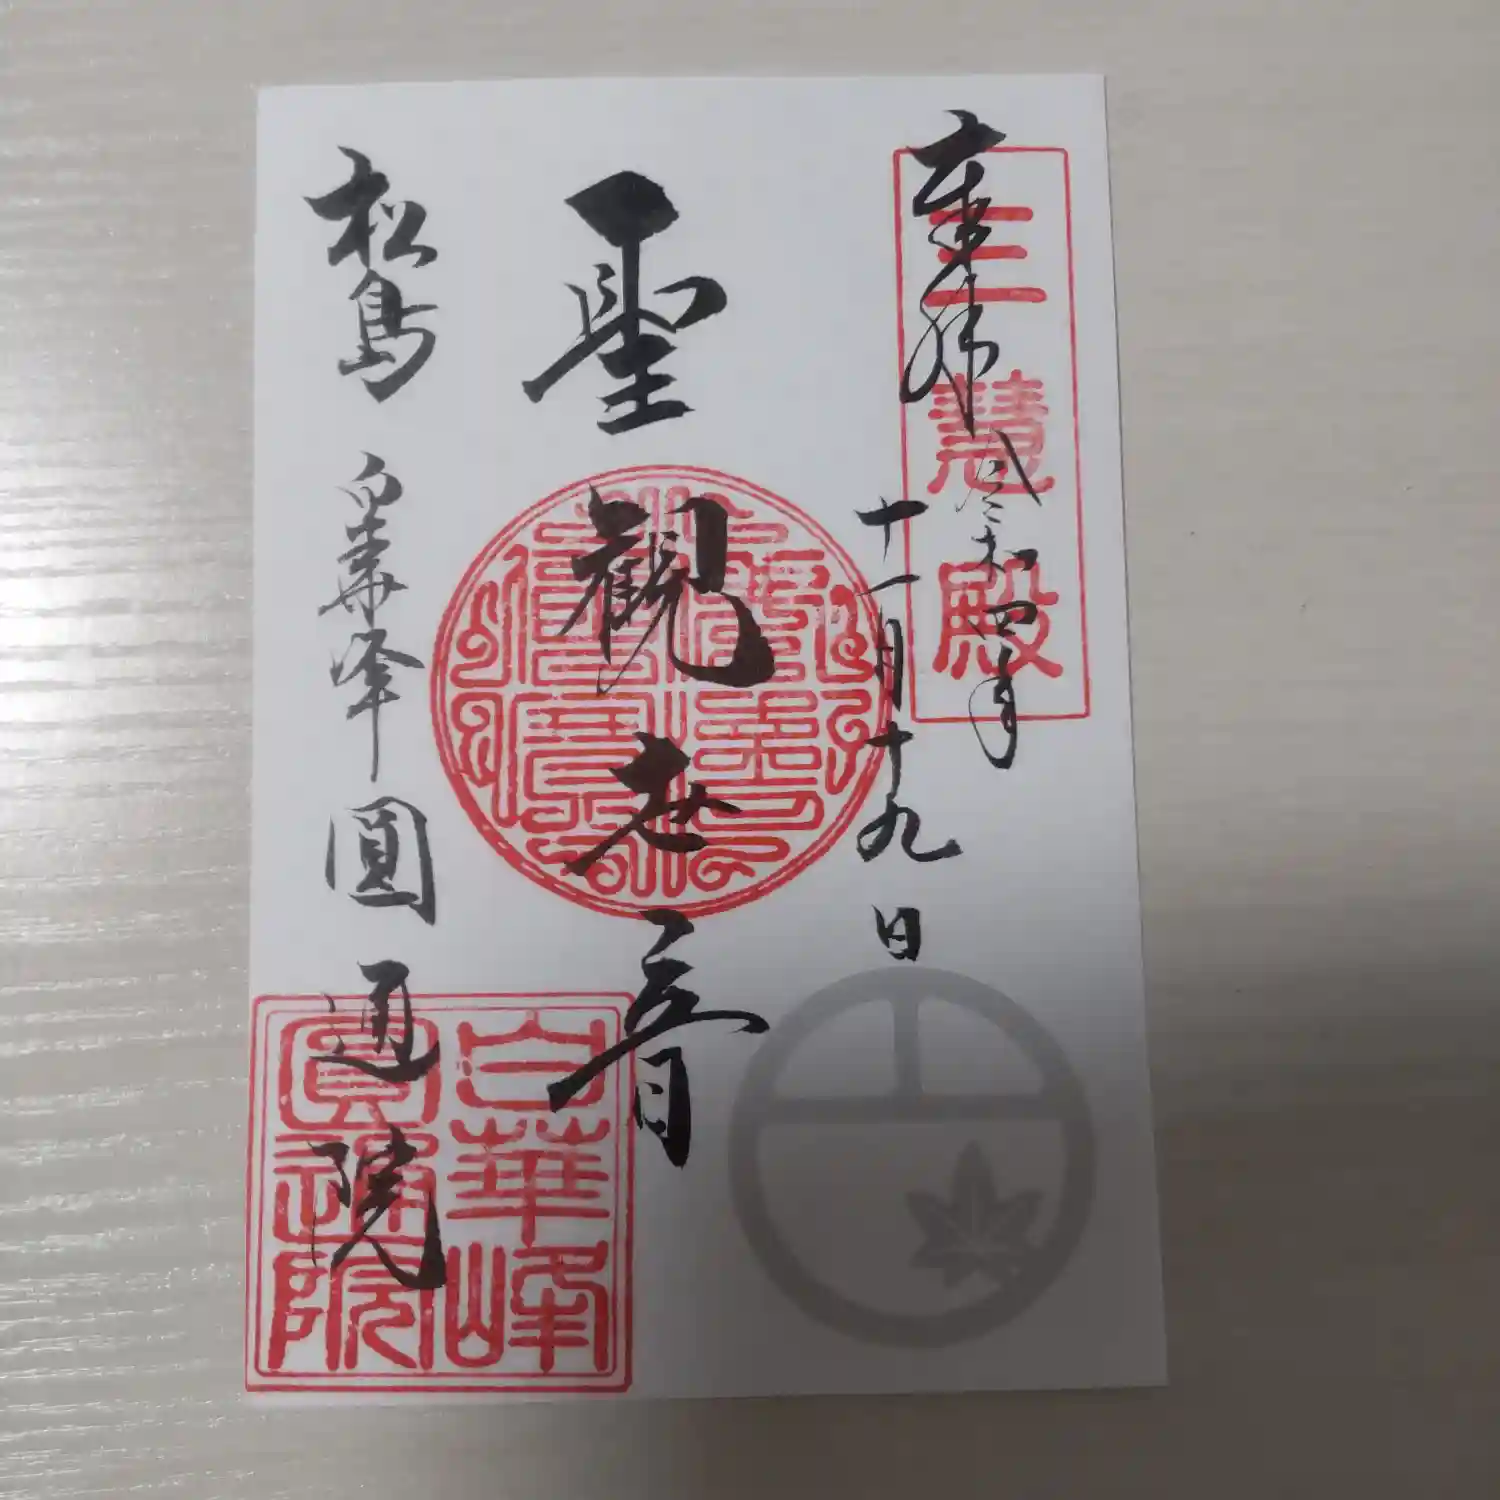 奉拝 令和四年
十一月十九日
三慧殿
聖觀世音
松島 白華峰 圓通院
白華峰
圓通院